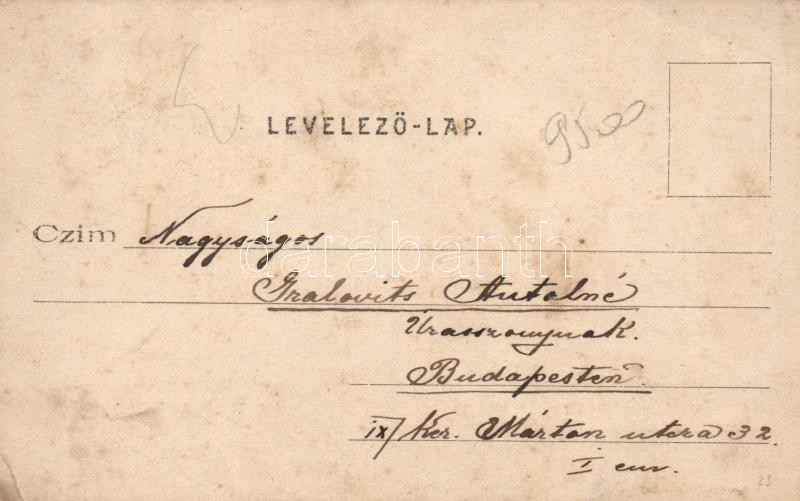 LEVELEZŐ-LAP.
9500
Czim Nagyságos
Gralovits Antalné
Úrasszonynak.
Budapesten.
IX/ Ker. Márton utcza 32.
I em.
23
darabanth